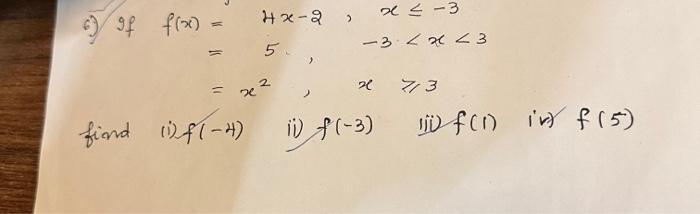 6) If f(x) = 4x-2 , x ≤ -3
= 5 , -3 < x < 3
= x² , x ⩾ 3
find (i) f(-4) ii) f(-3) iii) f(1) iv) f(5)